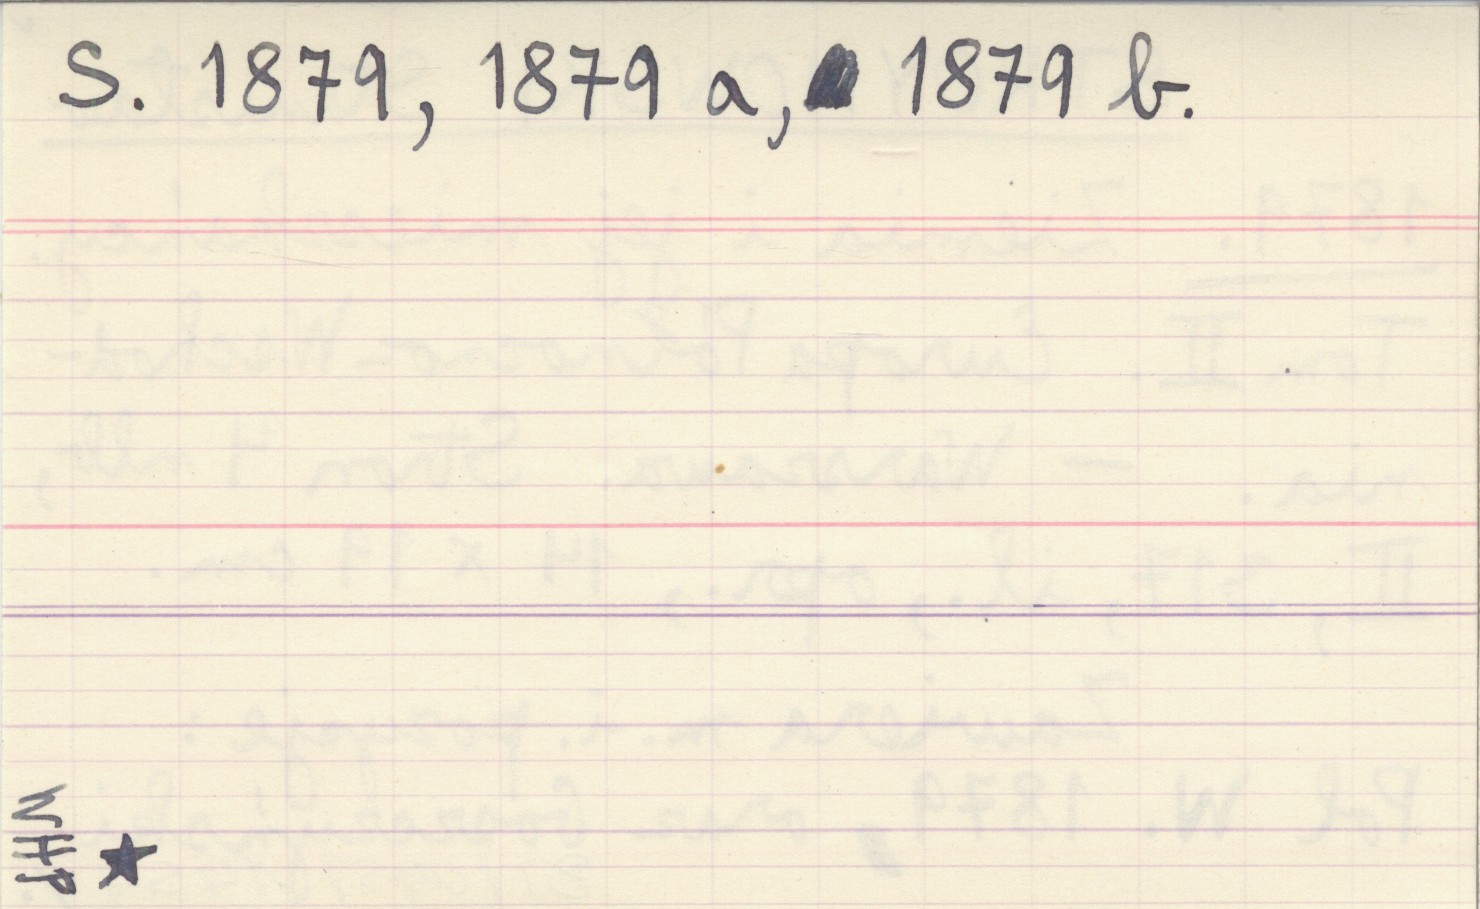 S. 1879, 1879 a, 1879 b.
WHP